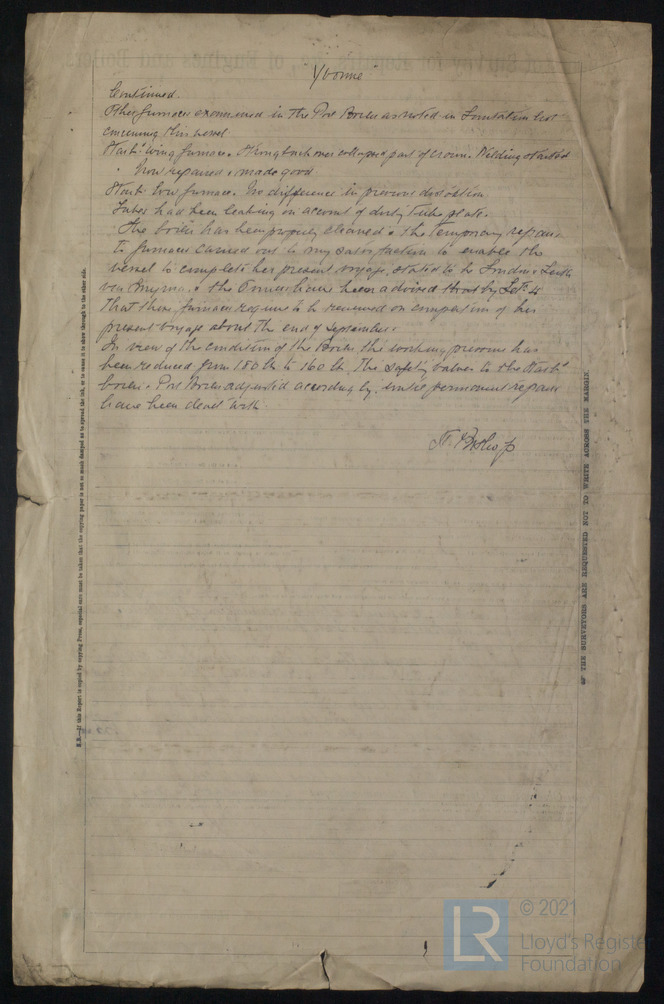 Yvonne
Continued.
Other furnaces examined in the Port Boiler as noted in
concerning this vessel
Starbd wing furnace. Strongback over collapsed part of crown. Welding started
Now repaired & made good
Starbd low furnace. No difference in previous distortion.
Tubes had been leaking on account of dirty tube plate.
The boiler has been properly cleaned & the temporary repairs
to furnaces carried out to my satisfaction to enable the
vessel to complete her present voyage, stated to be London, Leith
via & the Owners have been advised thus by Letr
That these furnaces require to be renewed on completion of her
present voyage about the end of September.
In view of the condition of the Boilers the working pressure has
been reduced from 180 lb to 160 lb, the safety valves to the Starbd
boiler & Port Boiler adjusted accordingly, until permanent repairs
have been dealt with
Bishop
N.B.—If this Report is copied by copying Press, especial care must be taken that the copying paper is not so much damped as to spread the ink, or to cause it to show through to the other side.
THE SURVEYORS ARE REQUESTED NOT TO WRITE ACROSS THE MARGIN.
LR
© 2021
Lloyd's Register
Foundation